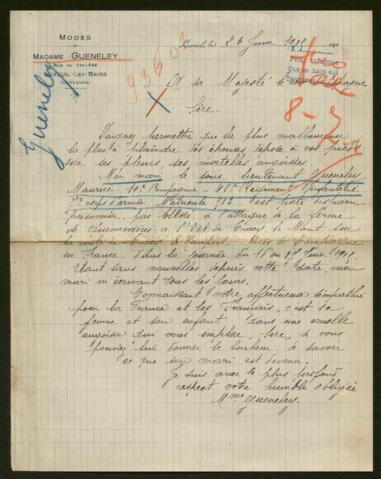 MODES
MADAME GUENELEY
RUE DU COLLÈGE
LUXEUIL-LES-BAINS
Gueneley
Luxeuil, les 26 Juin 1915
A sa Majesté le
Sire.
Daignez permettre que la plus malheureuse
la plus à plaindre des épouses
ses pleurs, ses mortelles angoisses
Mon mari le sous lieutenant Gueneley
Maurice, 10e Compagnie 42e Régiment Infanterie
7e corps d'armée Matricule 712 est porté disparu
prisonnier pas blessé à l'attaque de la ferme
de Quennevières à l'Est de Tracy le Mont sur
la route de
en France. Dans la journée du 16 au 17 Juin 1915
étant sans nouvelles depuis cette date mon
mari m'écrivant tous les jours.
Connaissant votre affectueuse sympathie
pour la France et les Français, c'est la
femme et son enfant dans une cruelle
angoisse qui vous supplie Sire, si vous
pouviez lui donner le bonheur à savoir
ce que son mari est devenu.
Je suis avec le plus profond
respect votre humble obligée
Mme Gueneley.